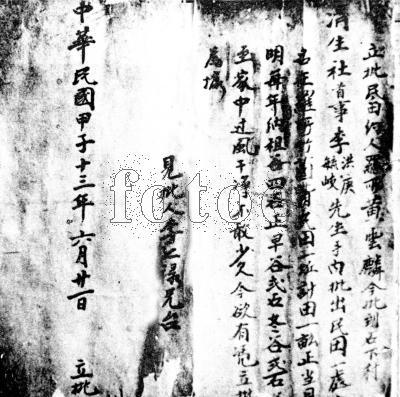 立批民田約人羅黃雲麟今批到石下行
濟生社首事李洪庚毓峻先生手內批出民田一處
名羅田一坵計田一畝正當日
明每年納租谷四石正早谷弍石冬谷弍石
至家中过風干淨不敢少欠今欲有憑立批
為據
見批人李仁祿元台
中華民國甲子十三年六月廿一日 立批
fotoe